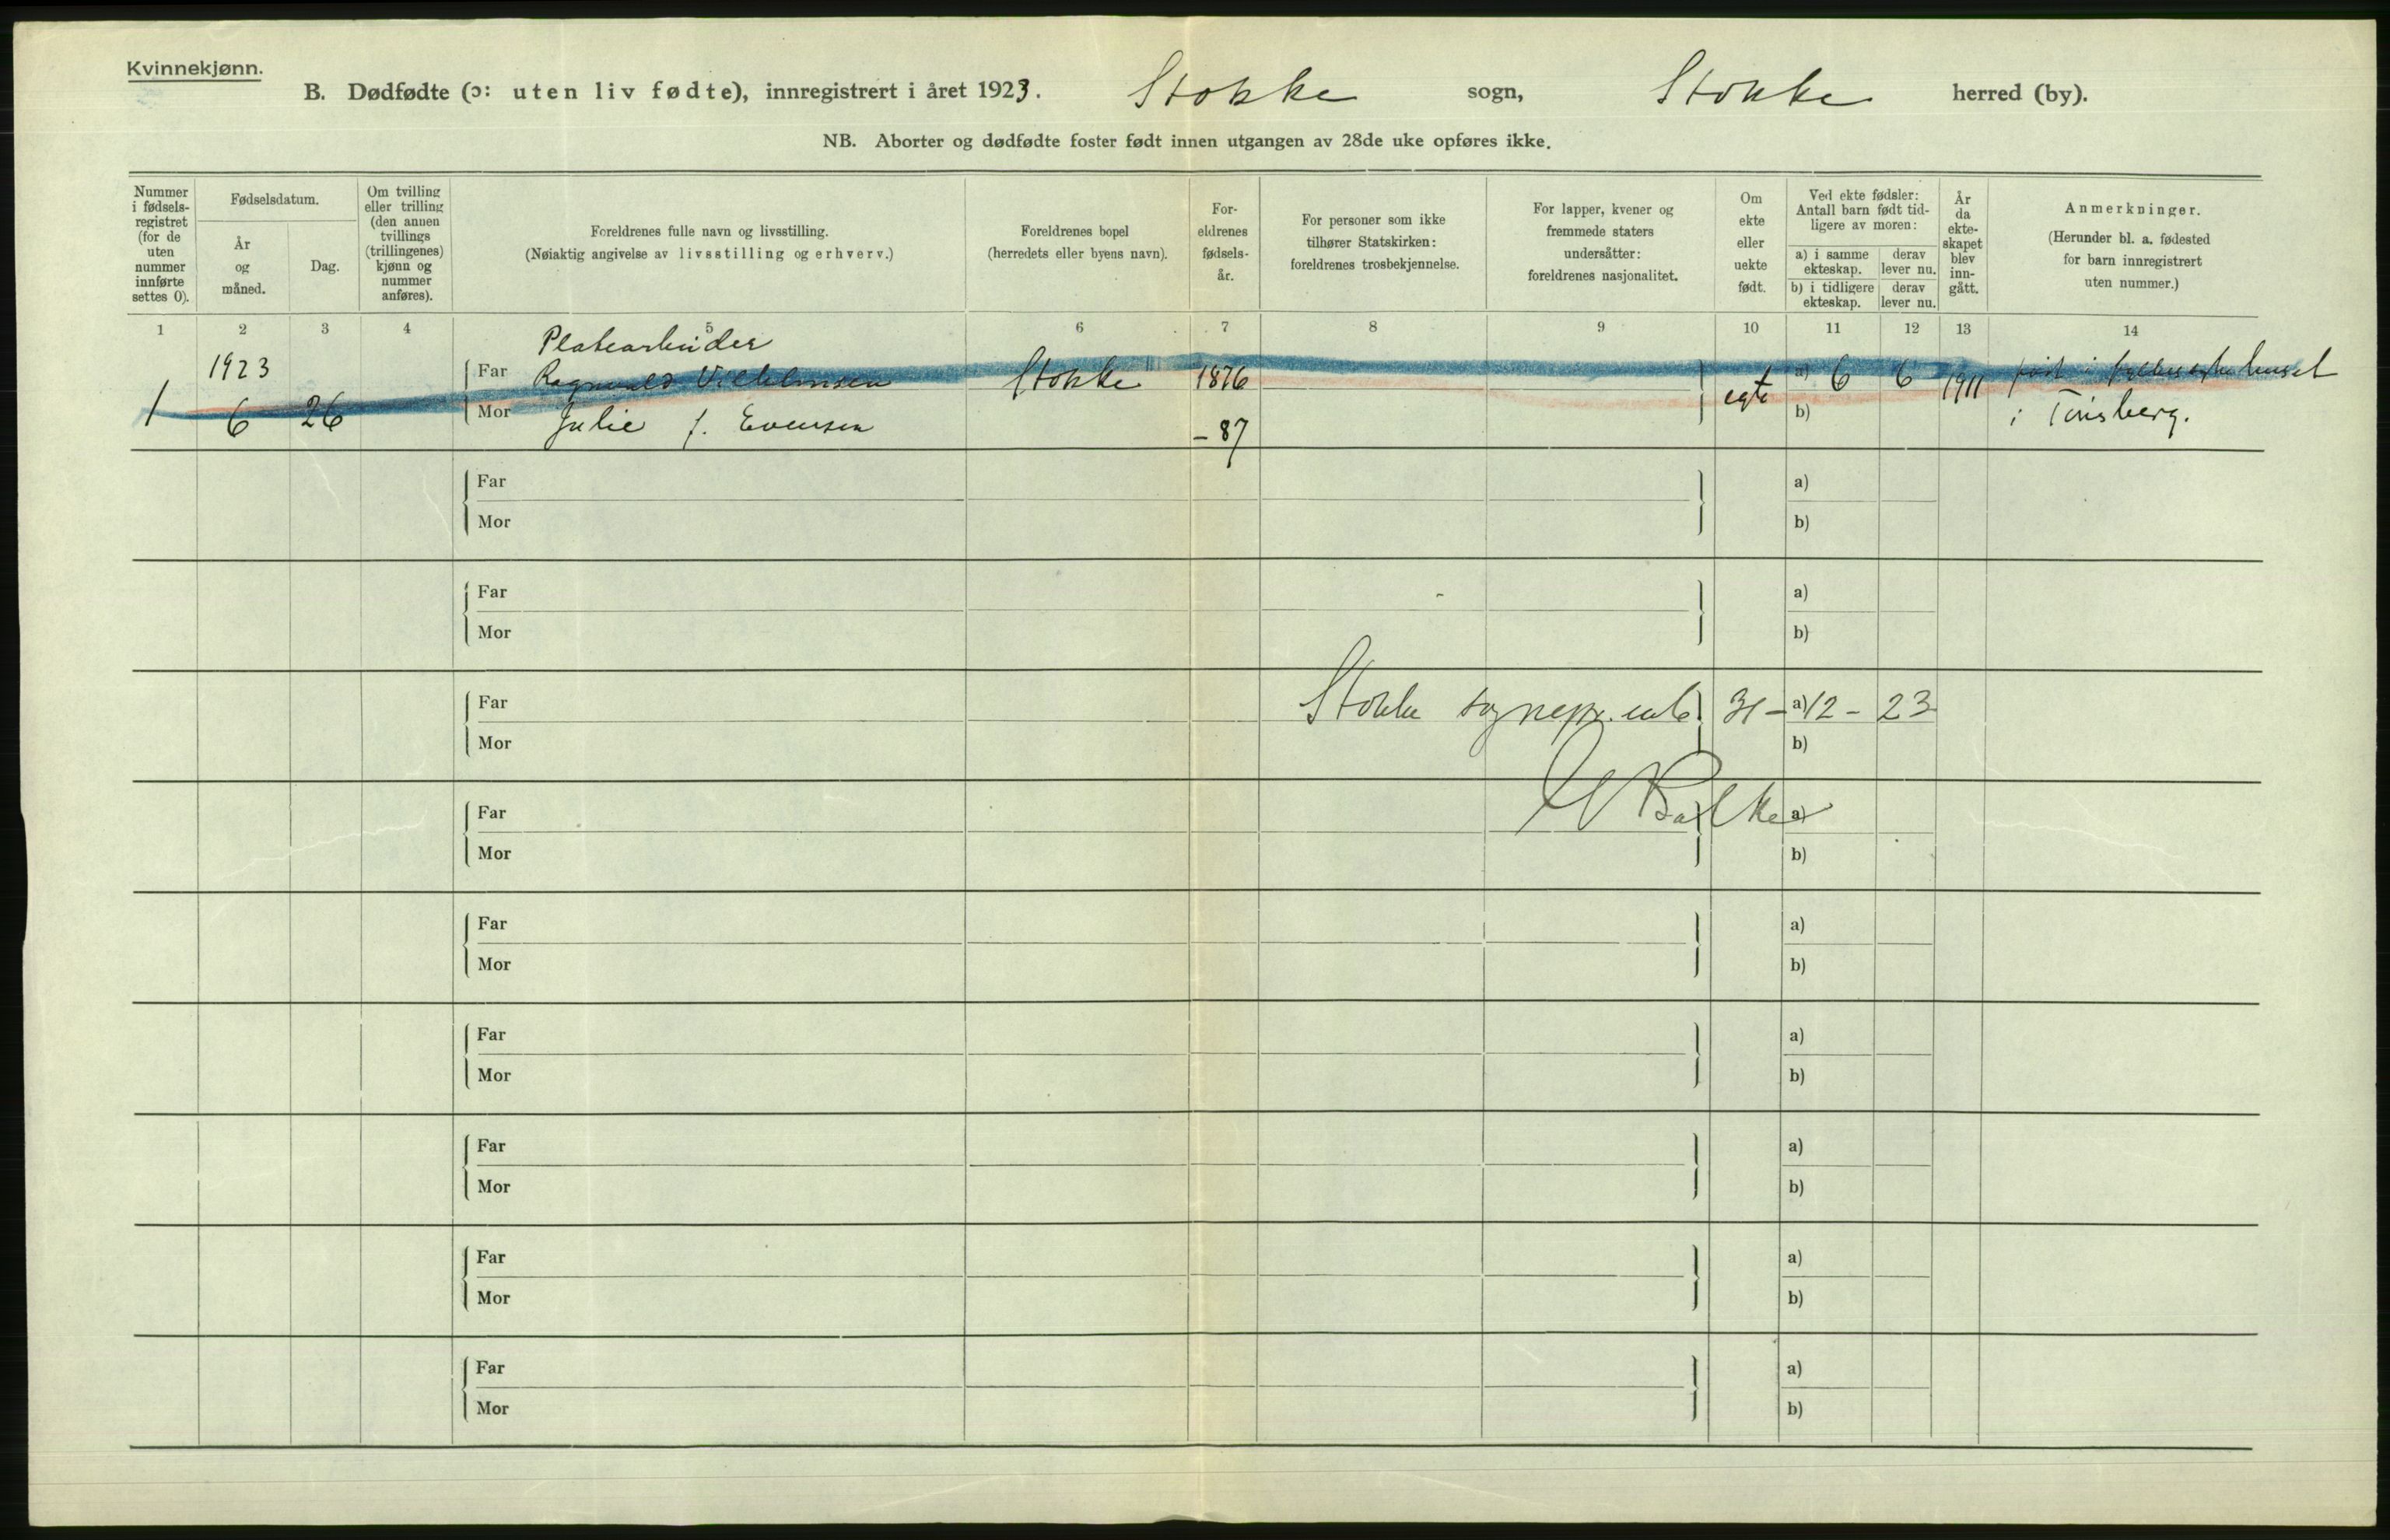 Kvinnekjønn.
B. Dødfødte (ɔ: uten liv fødte), innregistrert i året 1923. Stokke sogn, Stokke herred (by).
NB. Aborter og dødfødte foster født innen utgangen av 28de uke opføres ikke.
Nummer i fødselsregistret (for de uten nummer innførte settes 0).
Fødselsdatum.
År og måned.
Dag.
Om tvilling eller trilling (den annen tvillings (trillingenes) kjønn og nummer anføres).
Foreldrenes fulle navn og livsstilling.
(Nøiaktig angivelse av livsstilling og erhverv.)
Foreldrenes bopel
(herredets eller byens navn).
Foreldrenes fødselsår.
For personer som ikke tilhører Statskirken: foreldrenes trosbekjennelse.
For lapper, kvener og fremmede staters undersåtter: foreldrenes nasjonalitet.
Om ekte eller uekte født.
Ved ekte fødsler: Antall barn født tidligere av moren:
a) i samme ekteskap.
derav lever nu.
b) i tidligere ekteskap.
derav lever nu.
År da ekteskapet blev inngått.
Anmerkninger.
(Herunder bl. a. fødested for barn innregistrert uten nummer.)
1 2 3 4 5 6 7 8 9 10 11 12 13 14
Platearbeider
1923 Far Ragnvald Vilhelmsen Stokke 1876 egte a) 6 6 1911 født i
1 6 26 Mor Julie f. Evensen - 87 b) i Tønsberg.
Far a)
Mor b)
Far a)
Mor b)
Far Stokke sognepr. emb. 31 - a) 12 - 23
Mor b)
Far a)
Mor b)
Far a)
Mor b)
Far a)
Mor b)
Far a)
Mor b)
Far a)
Mor b)
Far a)
Mor b)